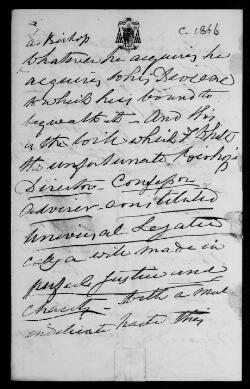 c. 1866
a Bishop
Whatever he acquires he
acquires to his Diocese
to which he is bound to
bequeath it - And this
is the will which I
the unfortunate
Director - Confessor
Adviser constituted
Universal Legatee
a will made in
perfect Justice and
Charity - with a
indicate haste this